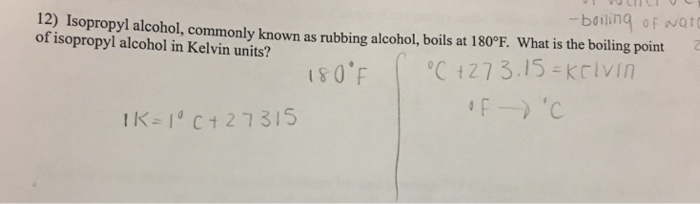 - boiling of wat
12) Isopropyl alcohol, commonly known as rubbing alcohol, boils at 180°F. What is the boiling point
of isopropyl alcohol in Kelvin units?
180°F
°C +273.15 = Kelvin
°F → °C
1K = 1° C + 27315